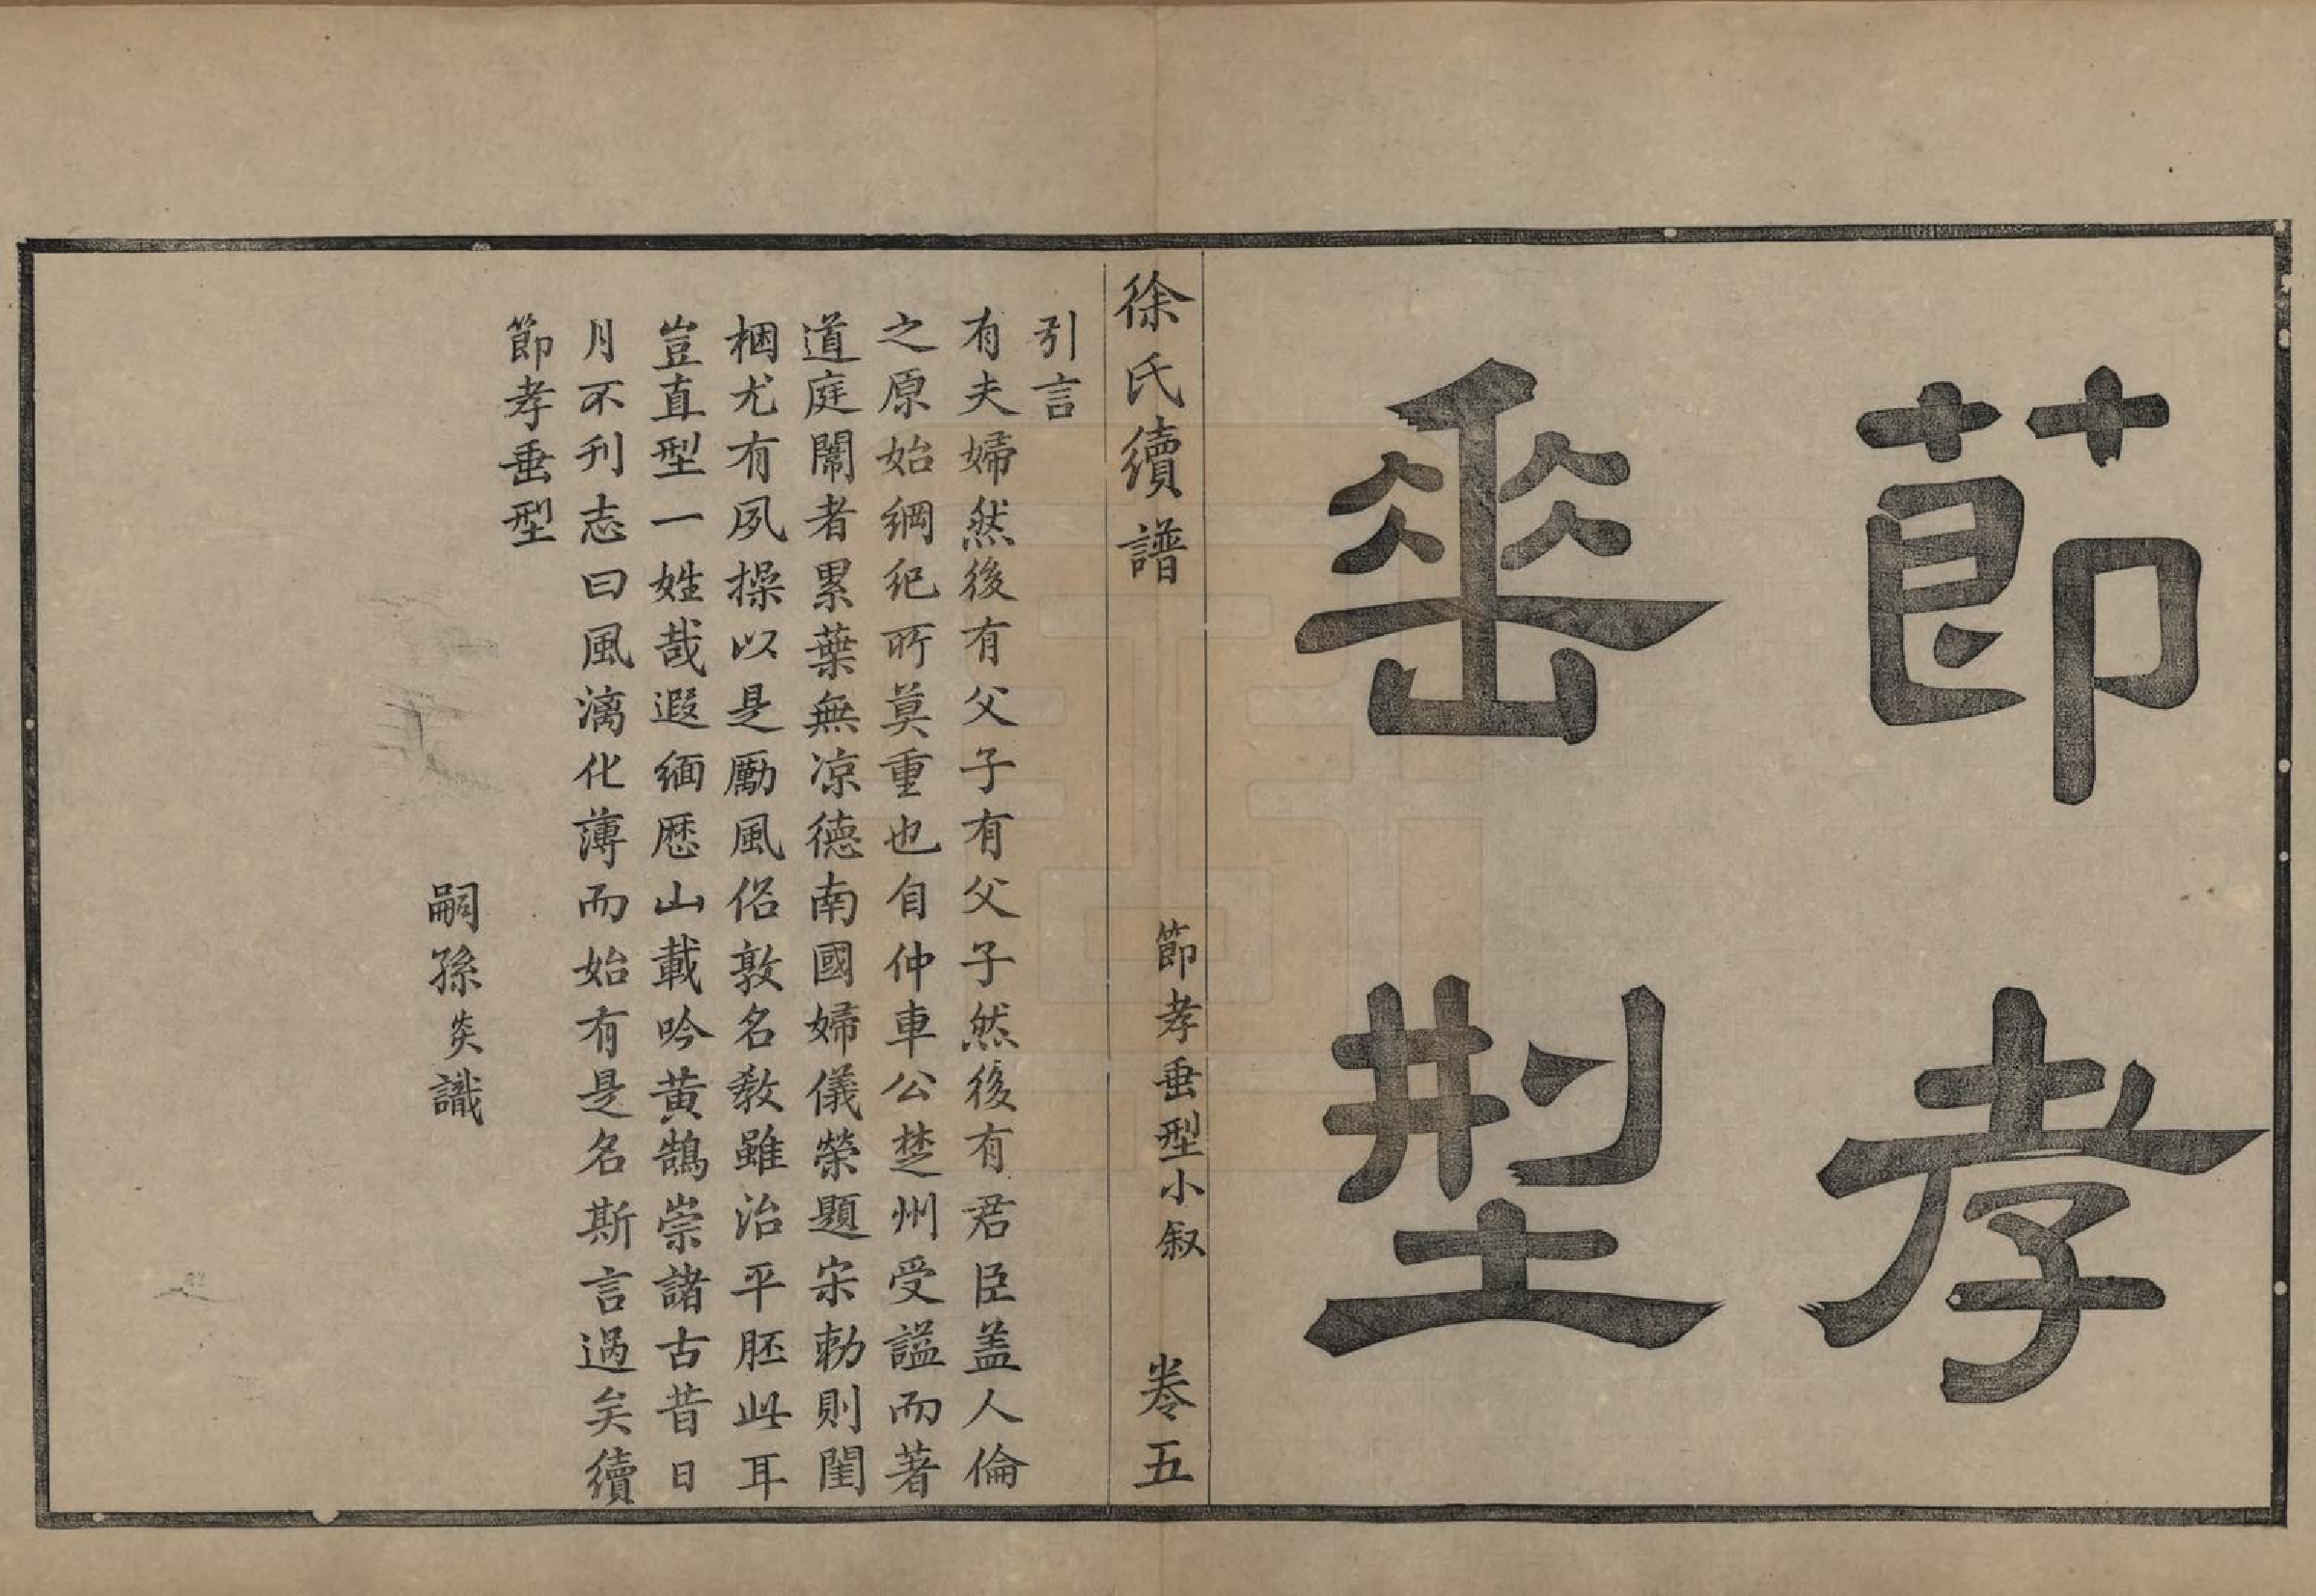 節孝
垂型
徐氏續譜
節孝垂型小叙
卷五
引言
有夫婦然後有父子有父子然後有君臣盖人倫
之原始綱紀所莫重也自仲車公楚州受謚而著
道庭闈者累葉無凉德南國婦儀榮題宋勅則閨
梱尤有夙操以是勵風俗敦名教雖治平胚此耳
豈直型一姓哉遐緬歷山載吟黄鵠崇諸古昔日
月不刋志曰風漓化薄而始有是名斯言過矣續
節孝垂型
嗣孫炎識